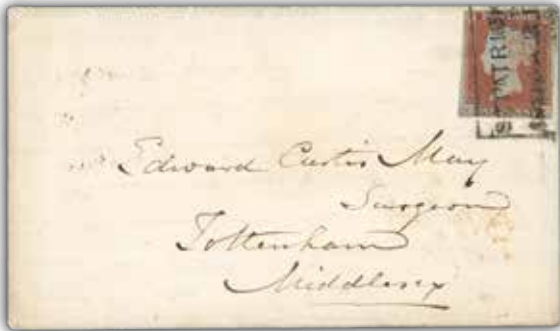 Edward Curtis May
Surgeon
Tottenham
Middlesex